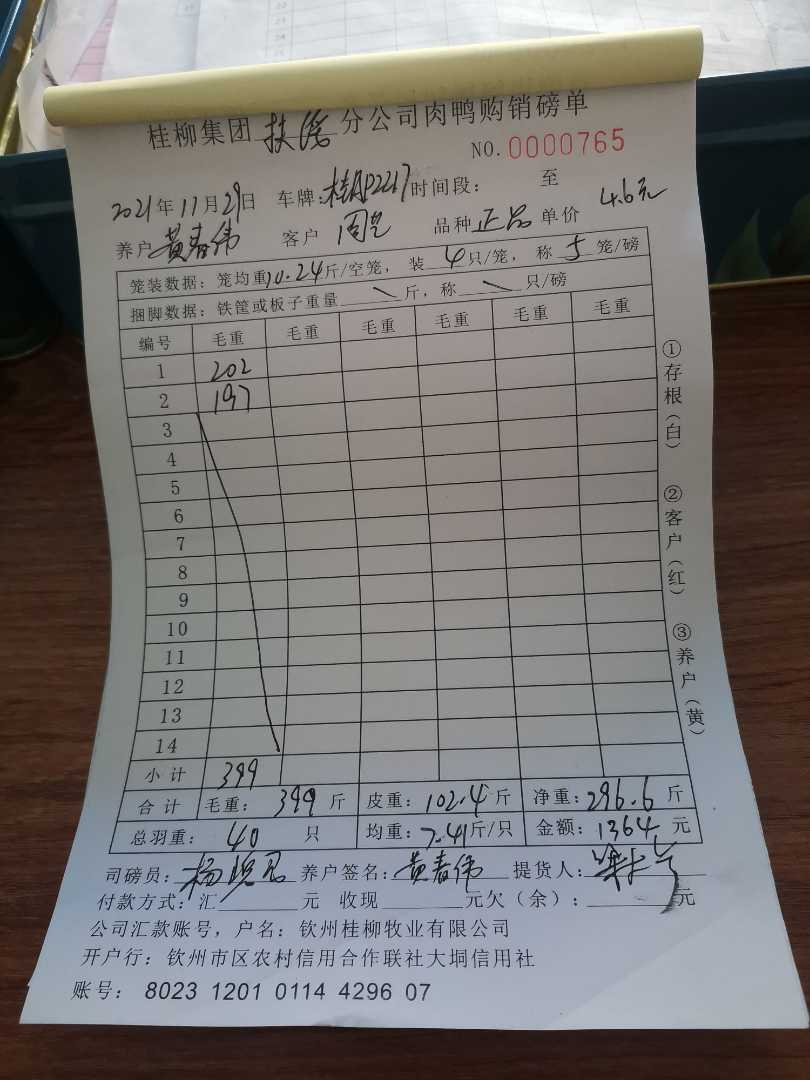 桂柳集团扶绥分公司肉鸭购销磅单
NO.0000765
2021年11月29日 车牌:桂AP2217 时间段: 至
养户 黄春伟 客户 周 品种 正品 单价 4.6元
笼装数据:笼均重10.24斤/空笼, 装4只/笼, 称5笼/磅
捆脚数据:铁筐或板子重量 斤,称 只/磅
编号 毛重 毛重 毛重 毛重 毛重 毛重
1 202
2 197
3
4
5
6
7
8
9
10
11
12
13
14
小计 399
合计 毛重: 399 斤 皮重: 102.4 斤 净重: 296.6 斤
总羽重: 40 只 均重: 7.41斤/只 金额: 1364 元
司磅员: 杨 养户签名: 黄春伟 提货人:
付款方式:汇 元 收现 元欠(余): 元
公司汇款账号,户名:钦州桂柳牧业有限公司
开户行:钦州市区农村信用合作联社大垌信用社
账号: 8023 1201 0114 4296 07
①存根(白)
②客户(红)
③养户(黄)